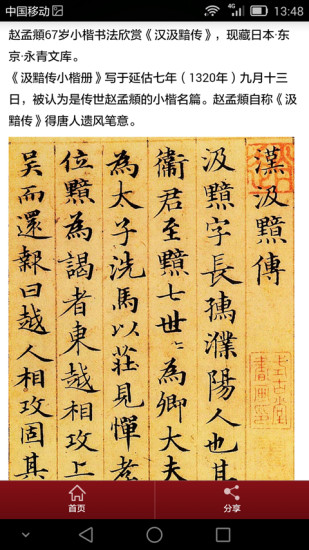 中国移动 4G 13:48
赵孟頫67岁小楷书法欣赏《汉汲黯传》，现藏日本·东
京·永青文库。
《汲黯传小楷册》写于延估七年（1320年）九月十三
日，被认为是传世赵孟頫的小楷名篇。赵孟頫自称《汲
黯传》得唐人遗风笔意。
漢汲黯傳
汲黯字長孺濮陽人也其
衛君至黯七世〻為卿大夫
為太子洗馬以莊見憚孝
位黯為謁者東越相攻上
吳而還報曰越人相攻固其
首页
分享